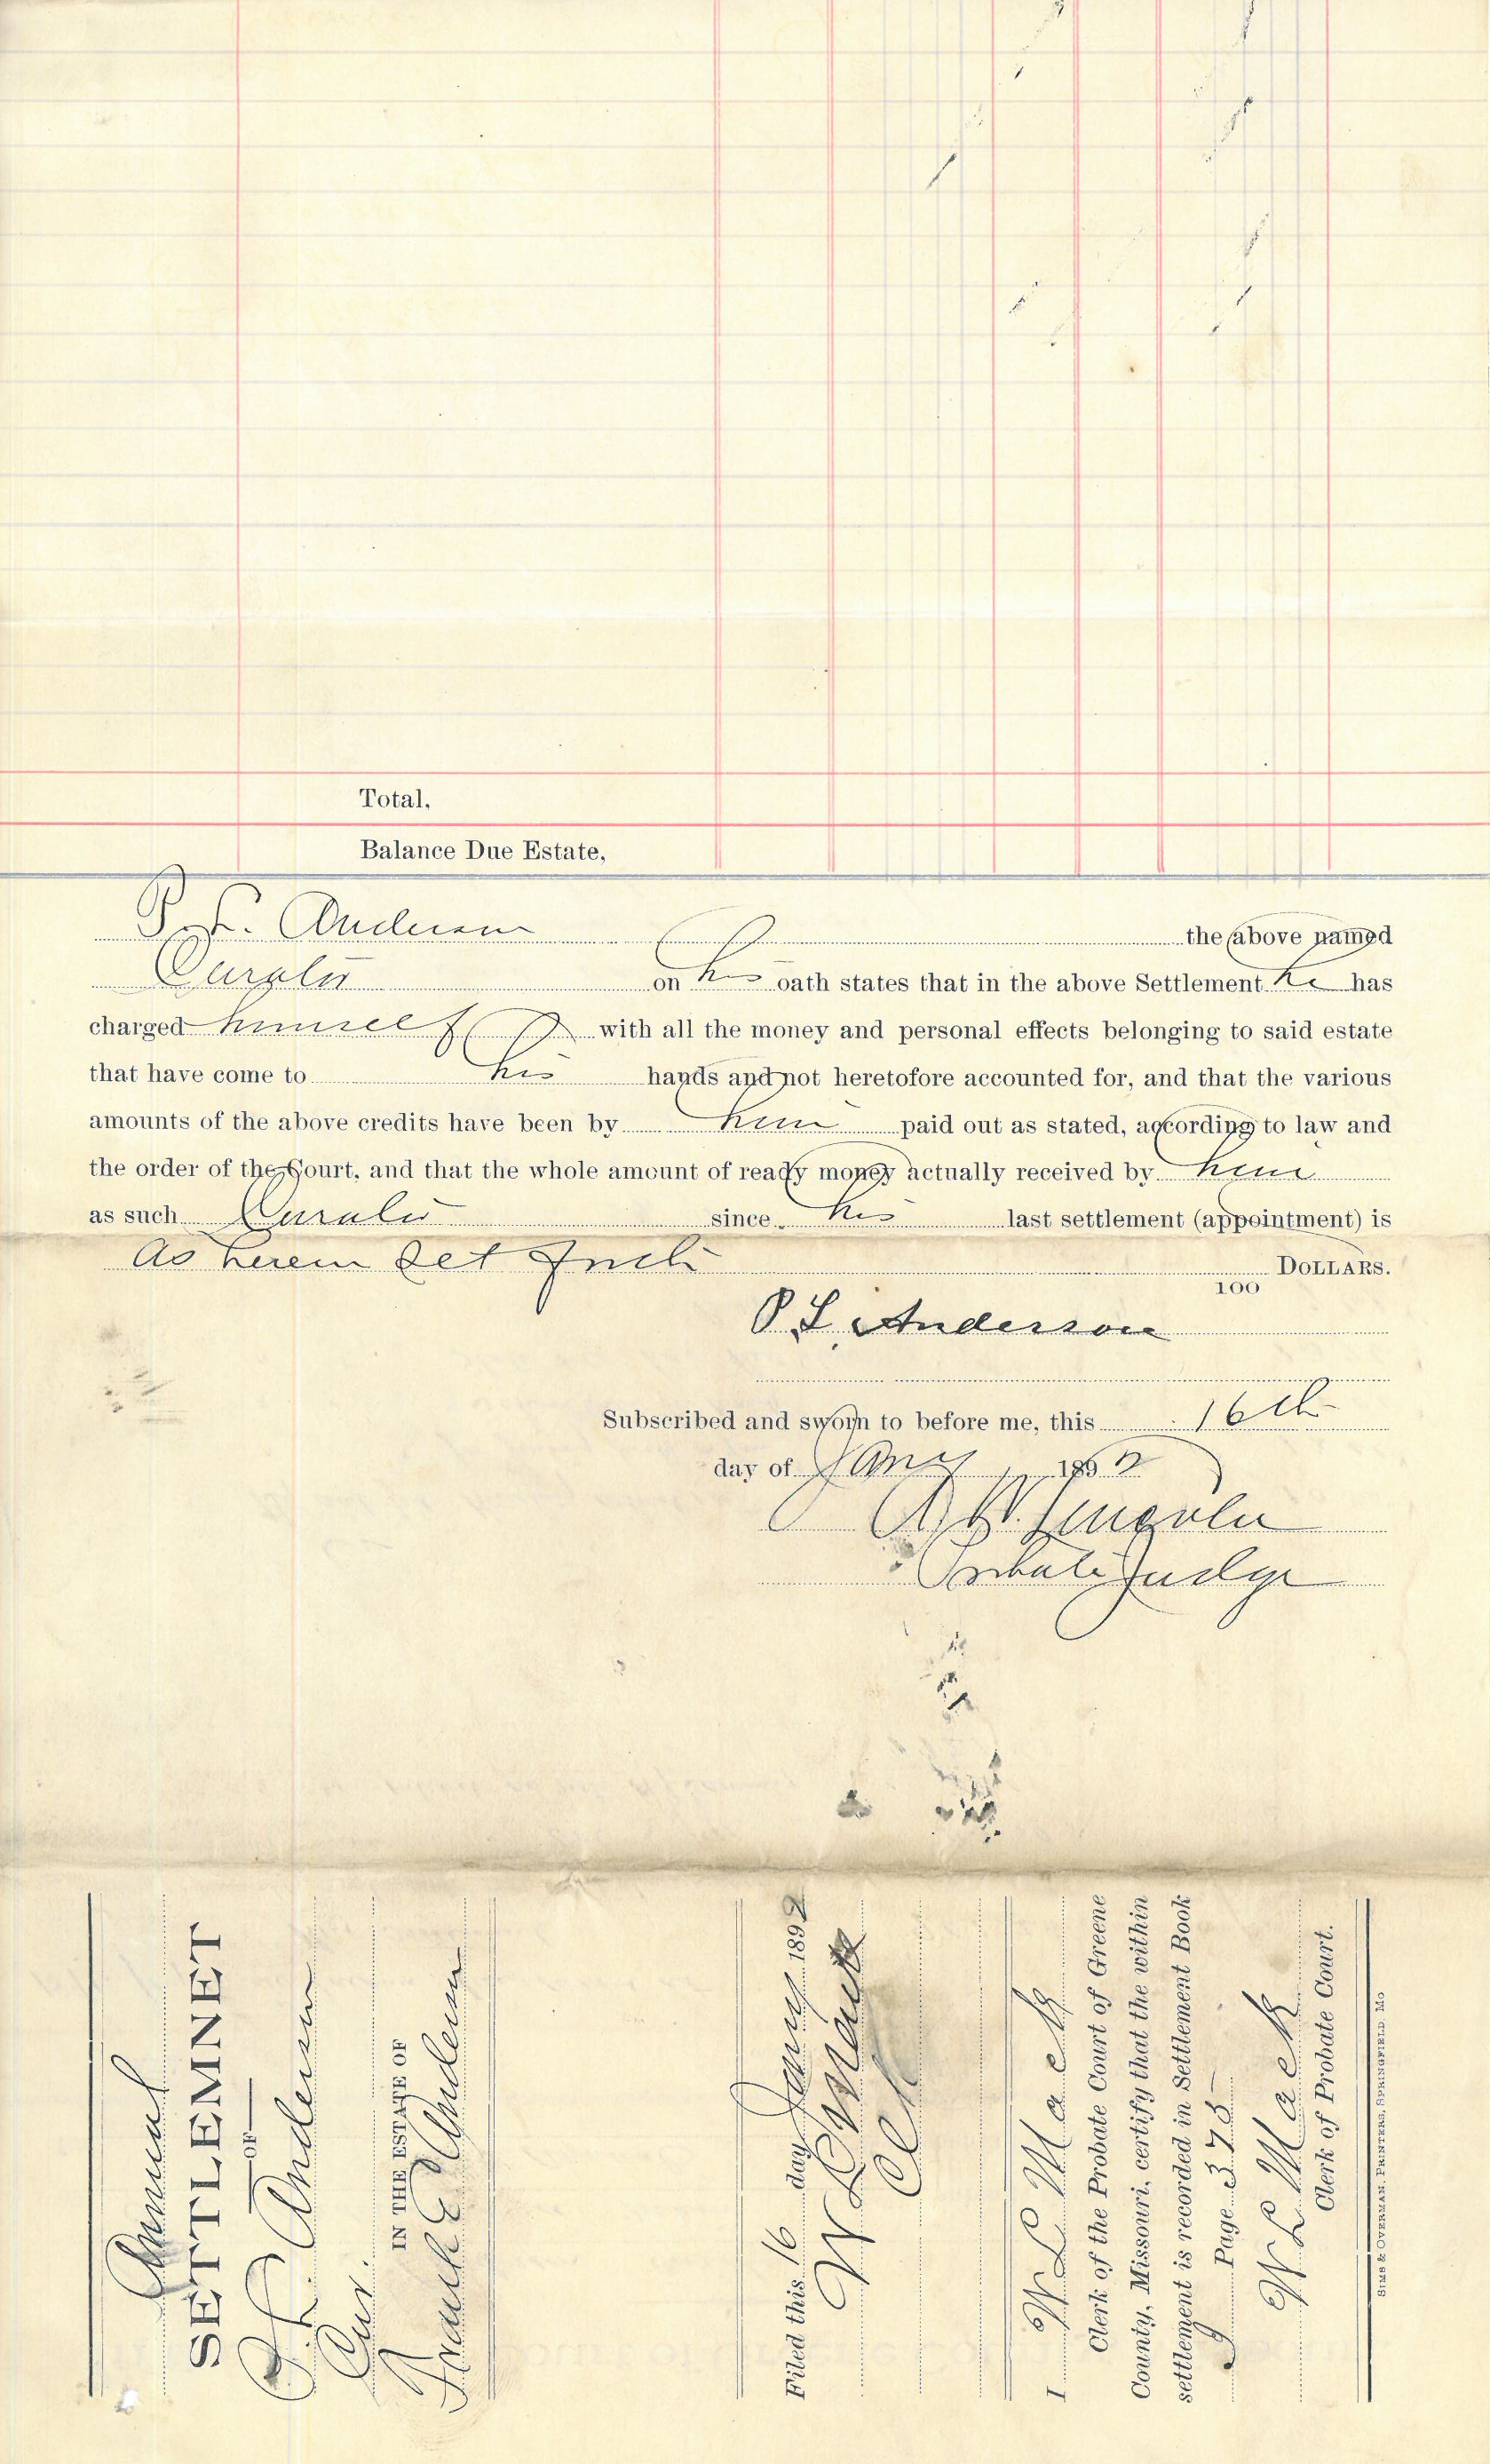 Total,
Balance Due Estate,
P. L. Anderson the above named
Curator on his oath states that in the above Settlement he has
charged himself with all the money and personal effects belonging to said estate
that have come to his hands and not heretofore accounted for, and that the various
amounts of the above credits have been by him paid out as stated, according to law and
the order of the Court, and that the whole amount of ready money actually received by him
as such Curator since his last settlement (appointment) is
as herein set forth DOLLARS.
100
P. L. Anderson
Subscribed and sworn to before me, this 16th
day of Jany 1892
A. W. Lincoln
Probate Judge
Annual
SETTLEMNET
OF
P. L. Anderson
Cur.
IN THE ESTATE OF
Frank E Anderson
Filed this 16 day Jany 1892
W L Mack
Clk
I W L Mack
Clerk of the Probate Court of Greene
County, Missouri, certify that the within
settlement is recorded in Settlement Book
Page 375
W L Mack
Clerk of Probate Court.
SIMS & OVERMAN, PRINTERS, SPRINGFIELD, MO